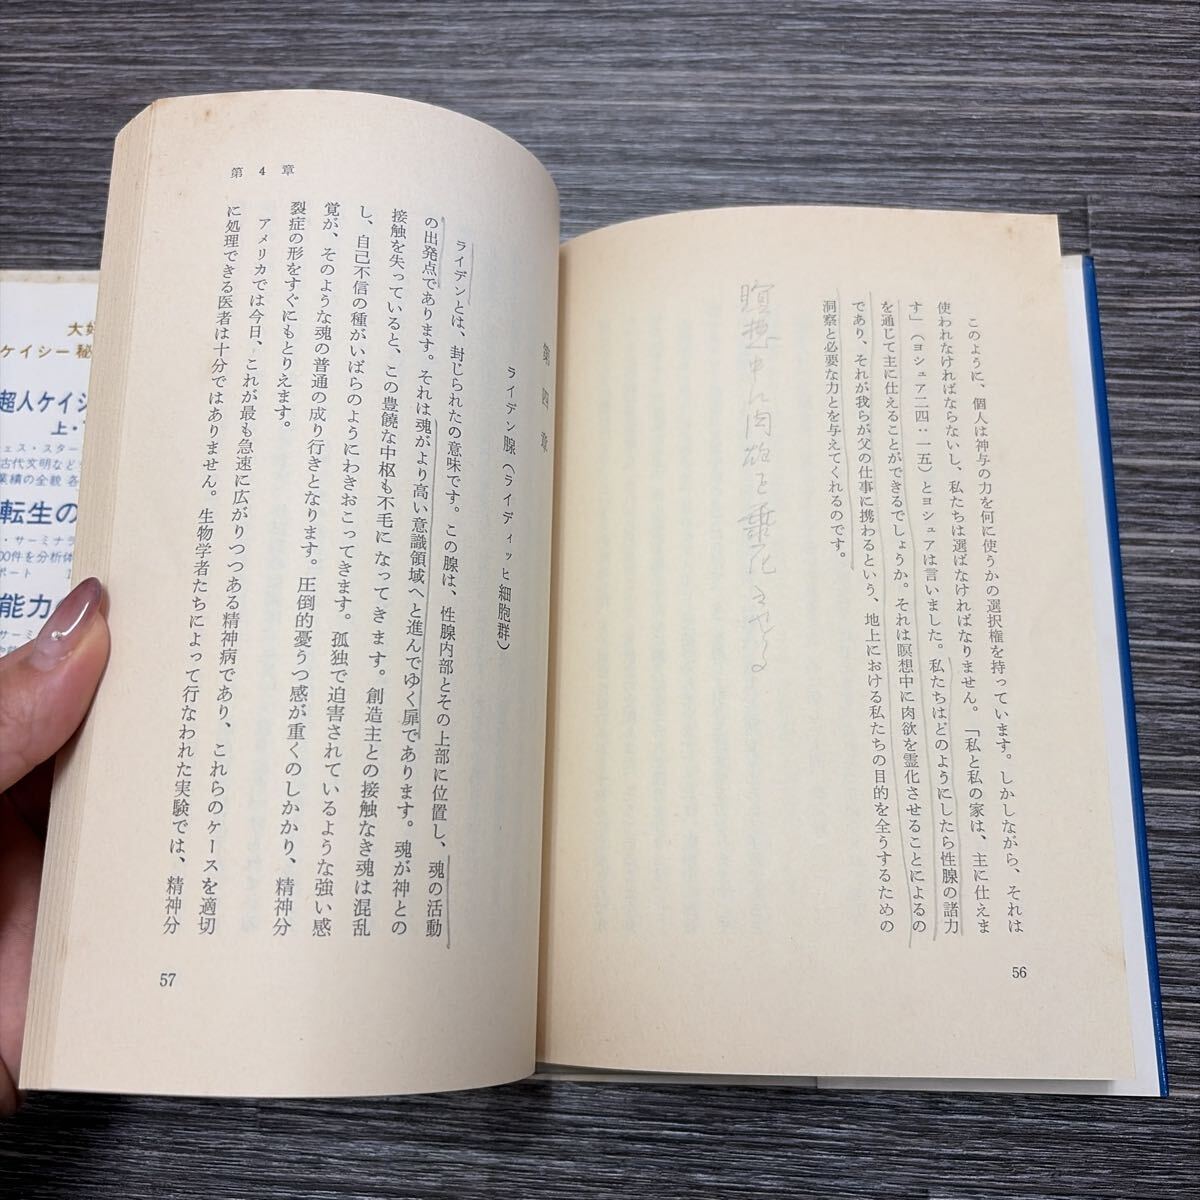 このように、個人は神与の力を何に使うかの選択権を持っています。しかしながら、それは
使われなければならないし、私たちは選ばなければなりません。「私と私の家は、主に仕えま
す」(ヨシュア二四:一五)とヨシュアは言いました。私たちはどのようにしたら性腺の諸力
を通じて主に仕えることができるでしょうか。それは瞑想中に肉欲を霊化させることによるの
であり、それが我らが父の仕事に携わるという、地上における私たちの目的を全うするための
洞察と必要な力とを与えてくれるのです。
瞑想中に肉欲を霊化させる
56
第4章
第四章
ライデン腺(ライディッヒ細胞群)
ライデンとは、封じられたの意味です。この腺は、性腺内部とその上部に位置し、魂の活動
の出発点であります。それは魂がより高い意識領域へと進んでゆく扉であります。魂が神との
接触を失っていると、この豊饒な中枢も不毛になってきます。創造主との接触なき魂は混乱
し、自己不信の種がいばらのようにわきおこってきます。孤独で迫害されているような強い感
覚が、そのような魂の普通の成り行きとなります。圧倒的憂うつ感が重くのしかかり、精神分
裂症の形をすぐにもとりえます。
アメリカでは今日、これが最も急速に広がりつつある精神病であり、これらのケースを適切
に処理できる医者は十分ではありません。生物学者たちによって行なわれた実験では、精神分
57
ケイシー秘
超人ケイシ
上・
ェス・スター
古代文明など
業績の全貌 各
転生の
・サーミナラ
00件を分析体
ポート
能力
サーミ